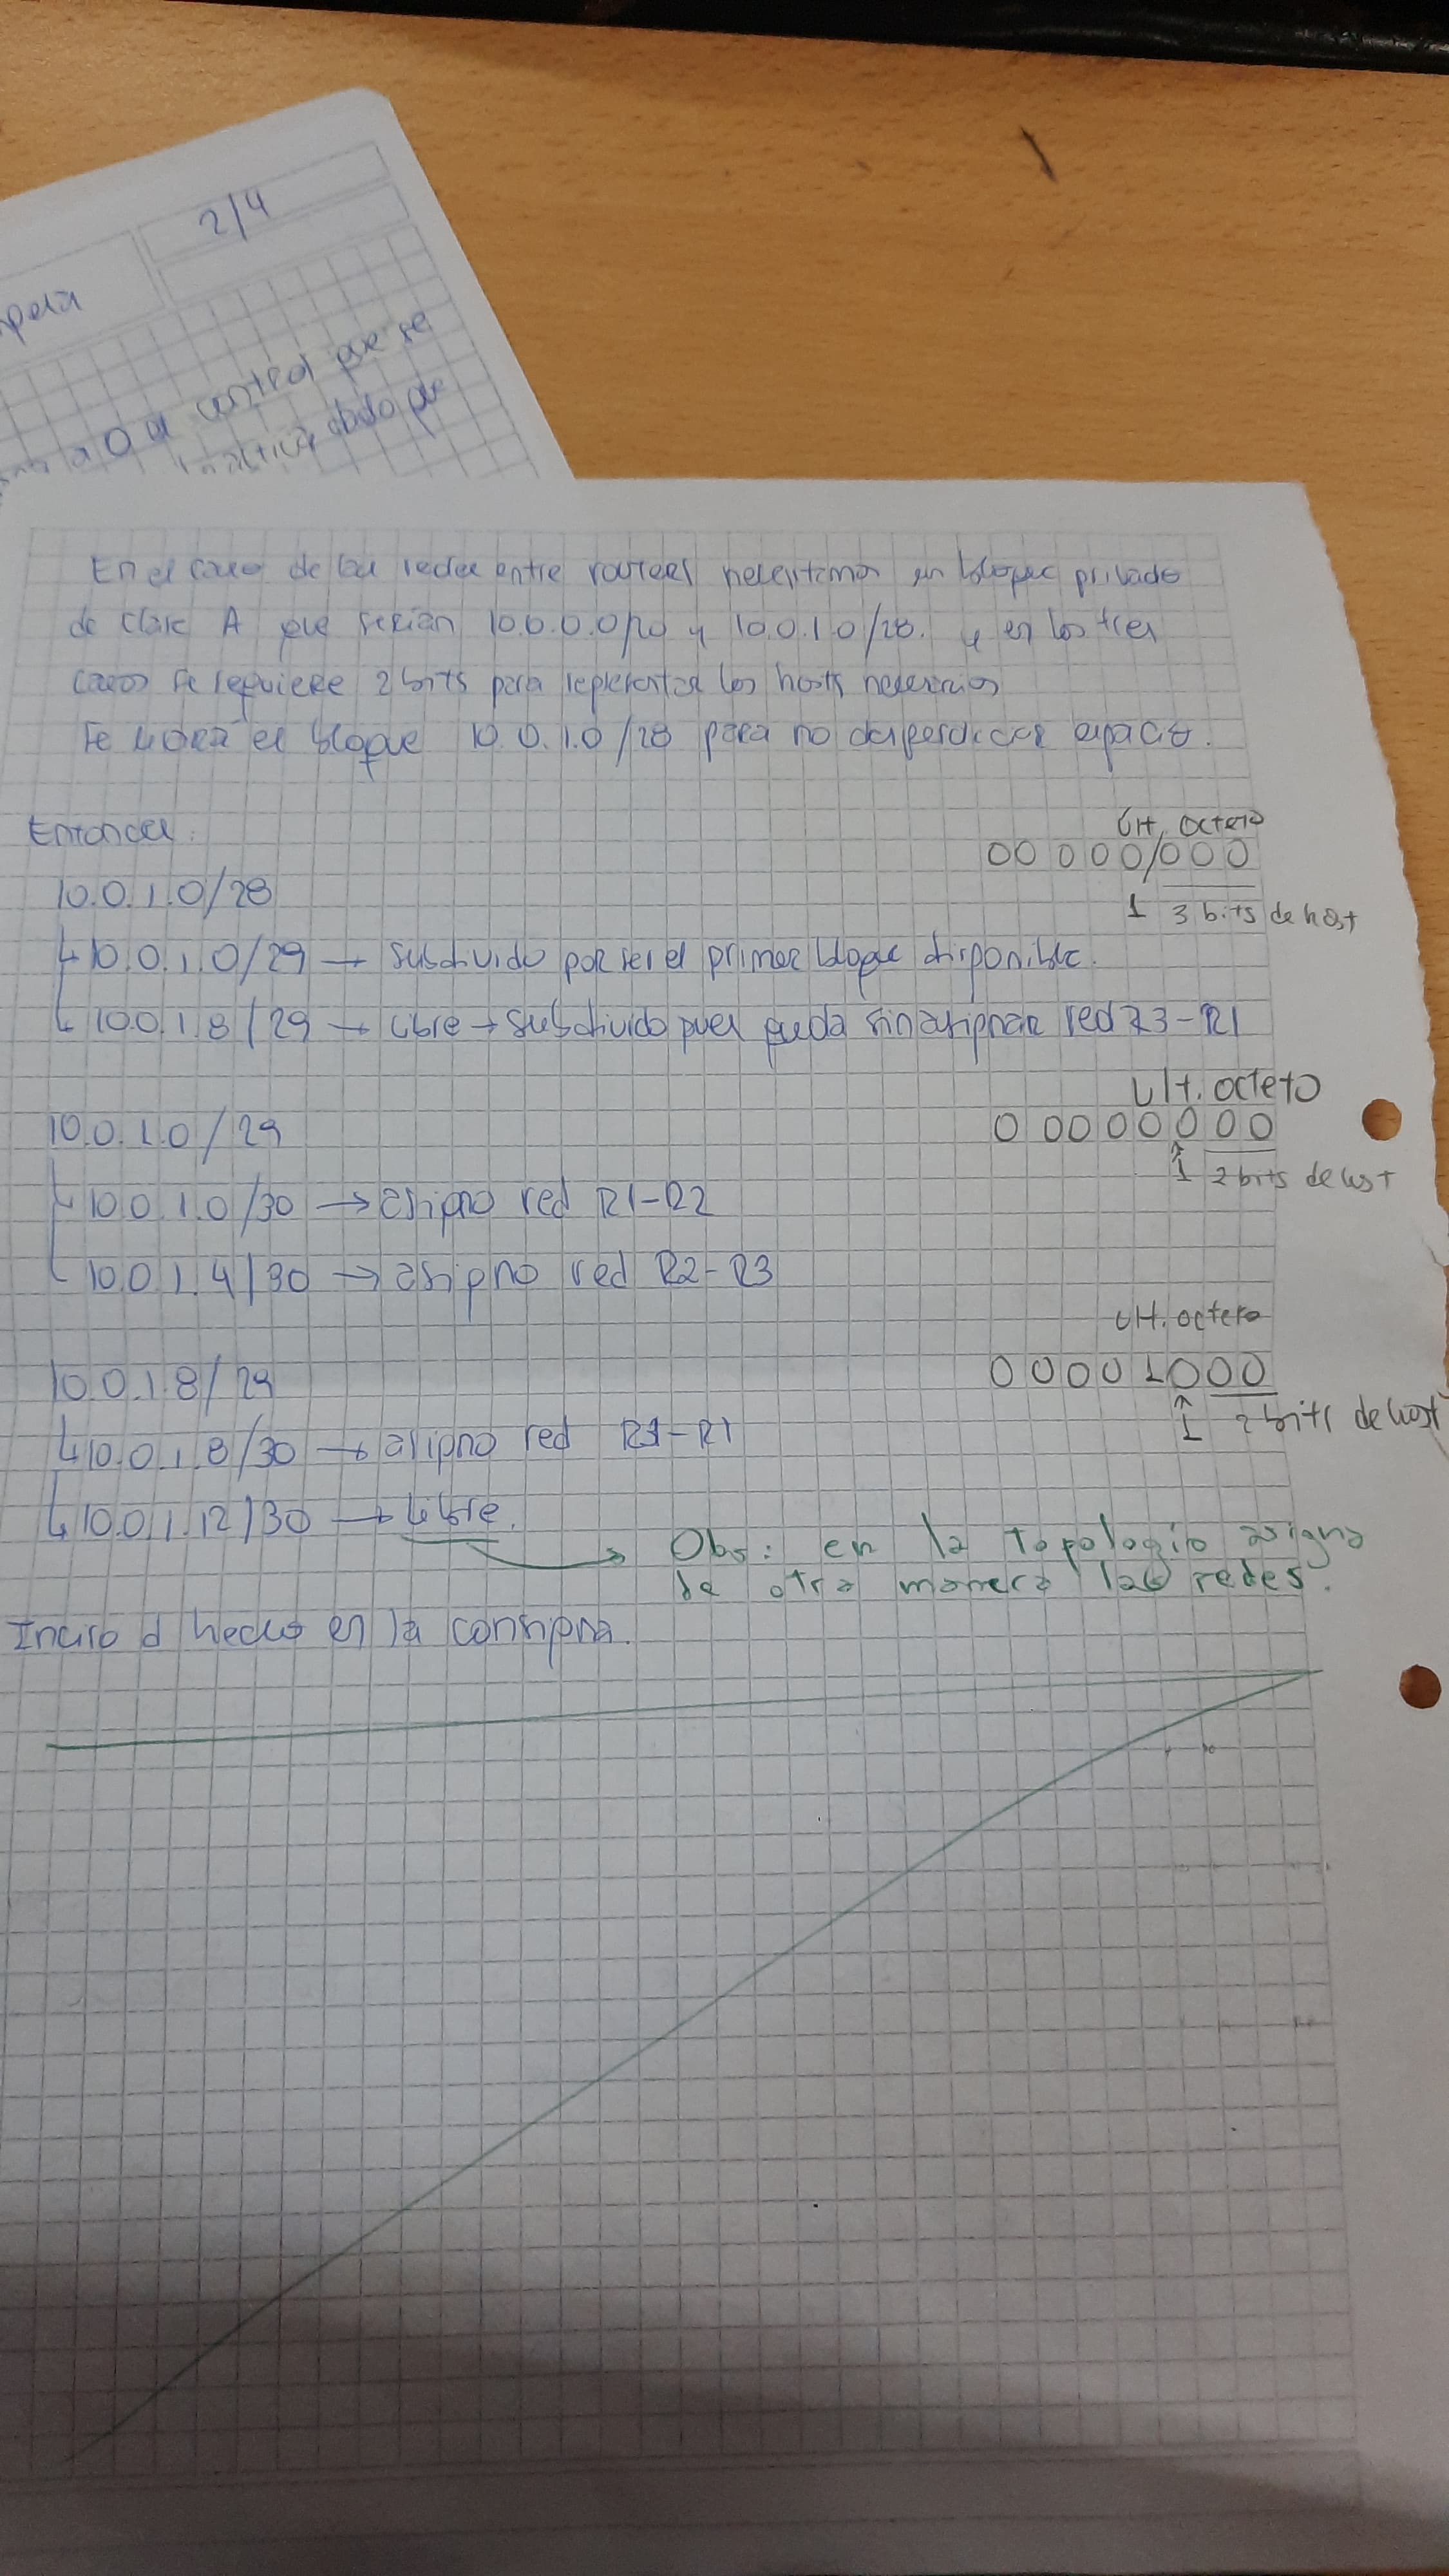 2/4
a 0 al control que se
dado que
En el caso de las redes entre routers necesitamos un bloque privado
de clase A que serían 10.0.0.0/20 y 10.0.1.0/28. y en los tres
casos se requiere 2 bits para representar los hosts necesarios
Se usará el bloque 10.0.1.0/28 para no desperdiciar espacio.
Entonces:
Últ. octeto
00 000/000
10.0.1.0/28
1 3 bits de host
↳ 10.0.1.0/29 → subdivido por ser el primer bloque disponible.
↳ 10.0.1.8/29 → libre → subdivido pues queda sin asignar red R3-R1
Ult. octeto
10.0.1.0/29
0 0000000
1 2 bits de host
↳ 10.0.1.0/30 → asigno red R1-R2
↳ 10.0.1.4/30 → asigno red R2-R3
Ult. octeto
10.0.1.8/29
00001000
1 2 bits de host
↳ 10.0.1.8/30 → asigno red R3-R1
↳ 10.0.1.12/30 → libre.
Obs: en la topologia asigna
de otra manera las redes.
Inciso d hecho en la consigna.